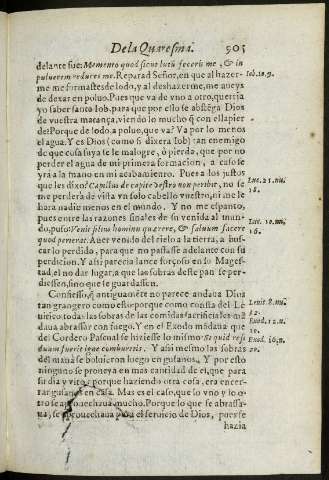 De la Quaresma.
905
delante fue: Memento quod sicut lutũ feceris me, & in
puluerem reduces me. Reparad Señor, en que al hazer-
me me formastes de lodo, y al deshazerme, me aueys
de dexar en poluo. Pues que va de vno a otro, querria
yo saber santo Iob, para que por esso se abstẽga Dios
de vuestra matança, viendo lo mucho q̃ con ella pier-
de? Porque de lodo, a poluo, que va? Va por lo menos
el agua. Y es Dios (como si dixera Iob) tan enemigo
de que cosa suya se le malogre, ò pierda, que por no
perder el agua de mi primera formacion, a caso se
yrà a la mano en mi acabamiento. Pues a los justos
que les dixo? Capillus de capite vestro non peribit, no se
me perderà de vista vn solo cabello vuestro, ni me le
hora nadie menos en el mundo. Y no me espanto,
pues entre las razones finales de su venida al mun-
do, puso: Venit filius hominis quærere, & saluum facere
quod perierat. Auer venido del cielo a la tierra, a bus-
car lo perdido, para que no passasse adelante con su
perdicion. Y assi parecia lance forçoso en su Magest-
tad, el no dar lugar, a que las sobras deste pan se per-
diessen, sino que se guardassen.
Confiesso, q̃ antiguamẽte no parece andaua Dios
tan grangero como esso: porque como consta del Le-
uitico, todas las sobras de las comidas sacrificales mã
daua abrassar con fuego. Y en el Exodo mãdaua que
del Cordero Pascual se hiziesse lo mismo: Si quid resi
duum fuerit igne comburetis. Y assi mesmo las sobras
del manà se boluieron luego en gusanos. Y por esto
ninguno se proueya en mas cantidad de el, que para
su dia y vito, porque haziendo otra cosa, era encer-
rar gusanos en casa. Mas es el caso, que lo vno y lo o-
tro se aprouechaua mucho. Porque lo que se abrassa-
ua, se aprouechaua para el seruicio de Dios, pues se
hazia
Iob. 10. 9.
Luc. 21. nu.
18.
Luc. 19. nu.
Leuit. 8. nu.
Exod. 12. n.
Exod. 16. n.